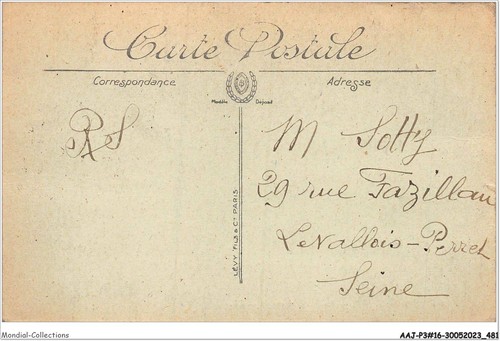 Carte Postale
Correspondance
Adresse
Modèle Déposé
RS
M Sotty
29 rue Fazillau
Levallois-Perret
Seine
LÉVY FILS & Cie PARIS
Mondial-Collections
AAJ-P3#16-30052023_481